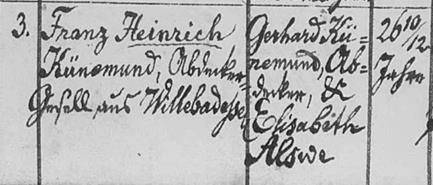 3. Franz Heinrich
Künemund, Abdecker-
Gesell aus Willebadesse,
Gerhard Kü-
nemund, Ab-
decker, &
Elisabeth
Alswe
26 10/12
Jahre